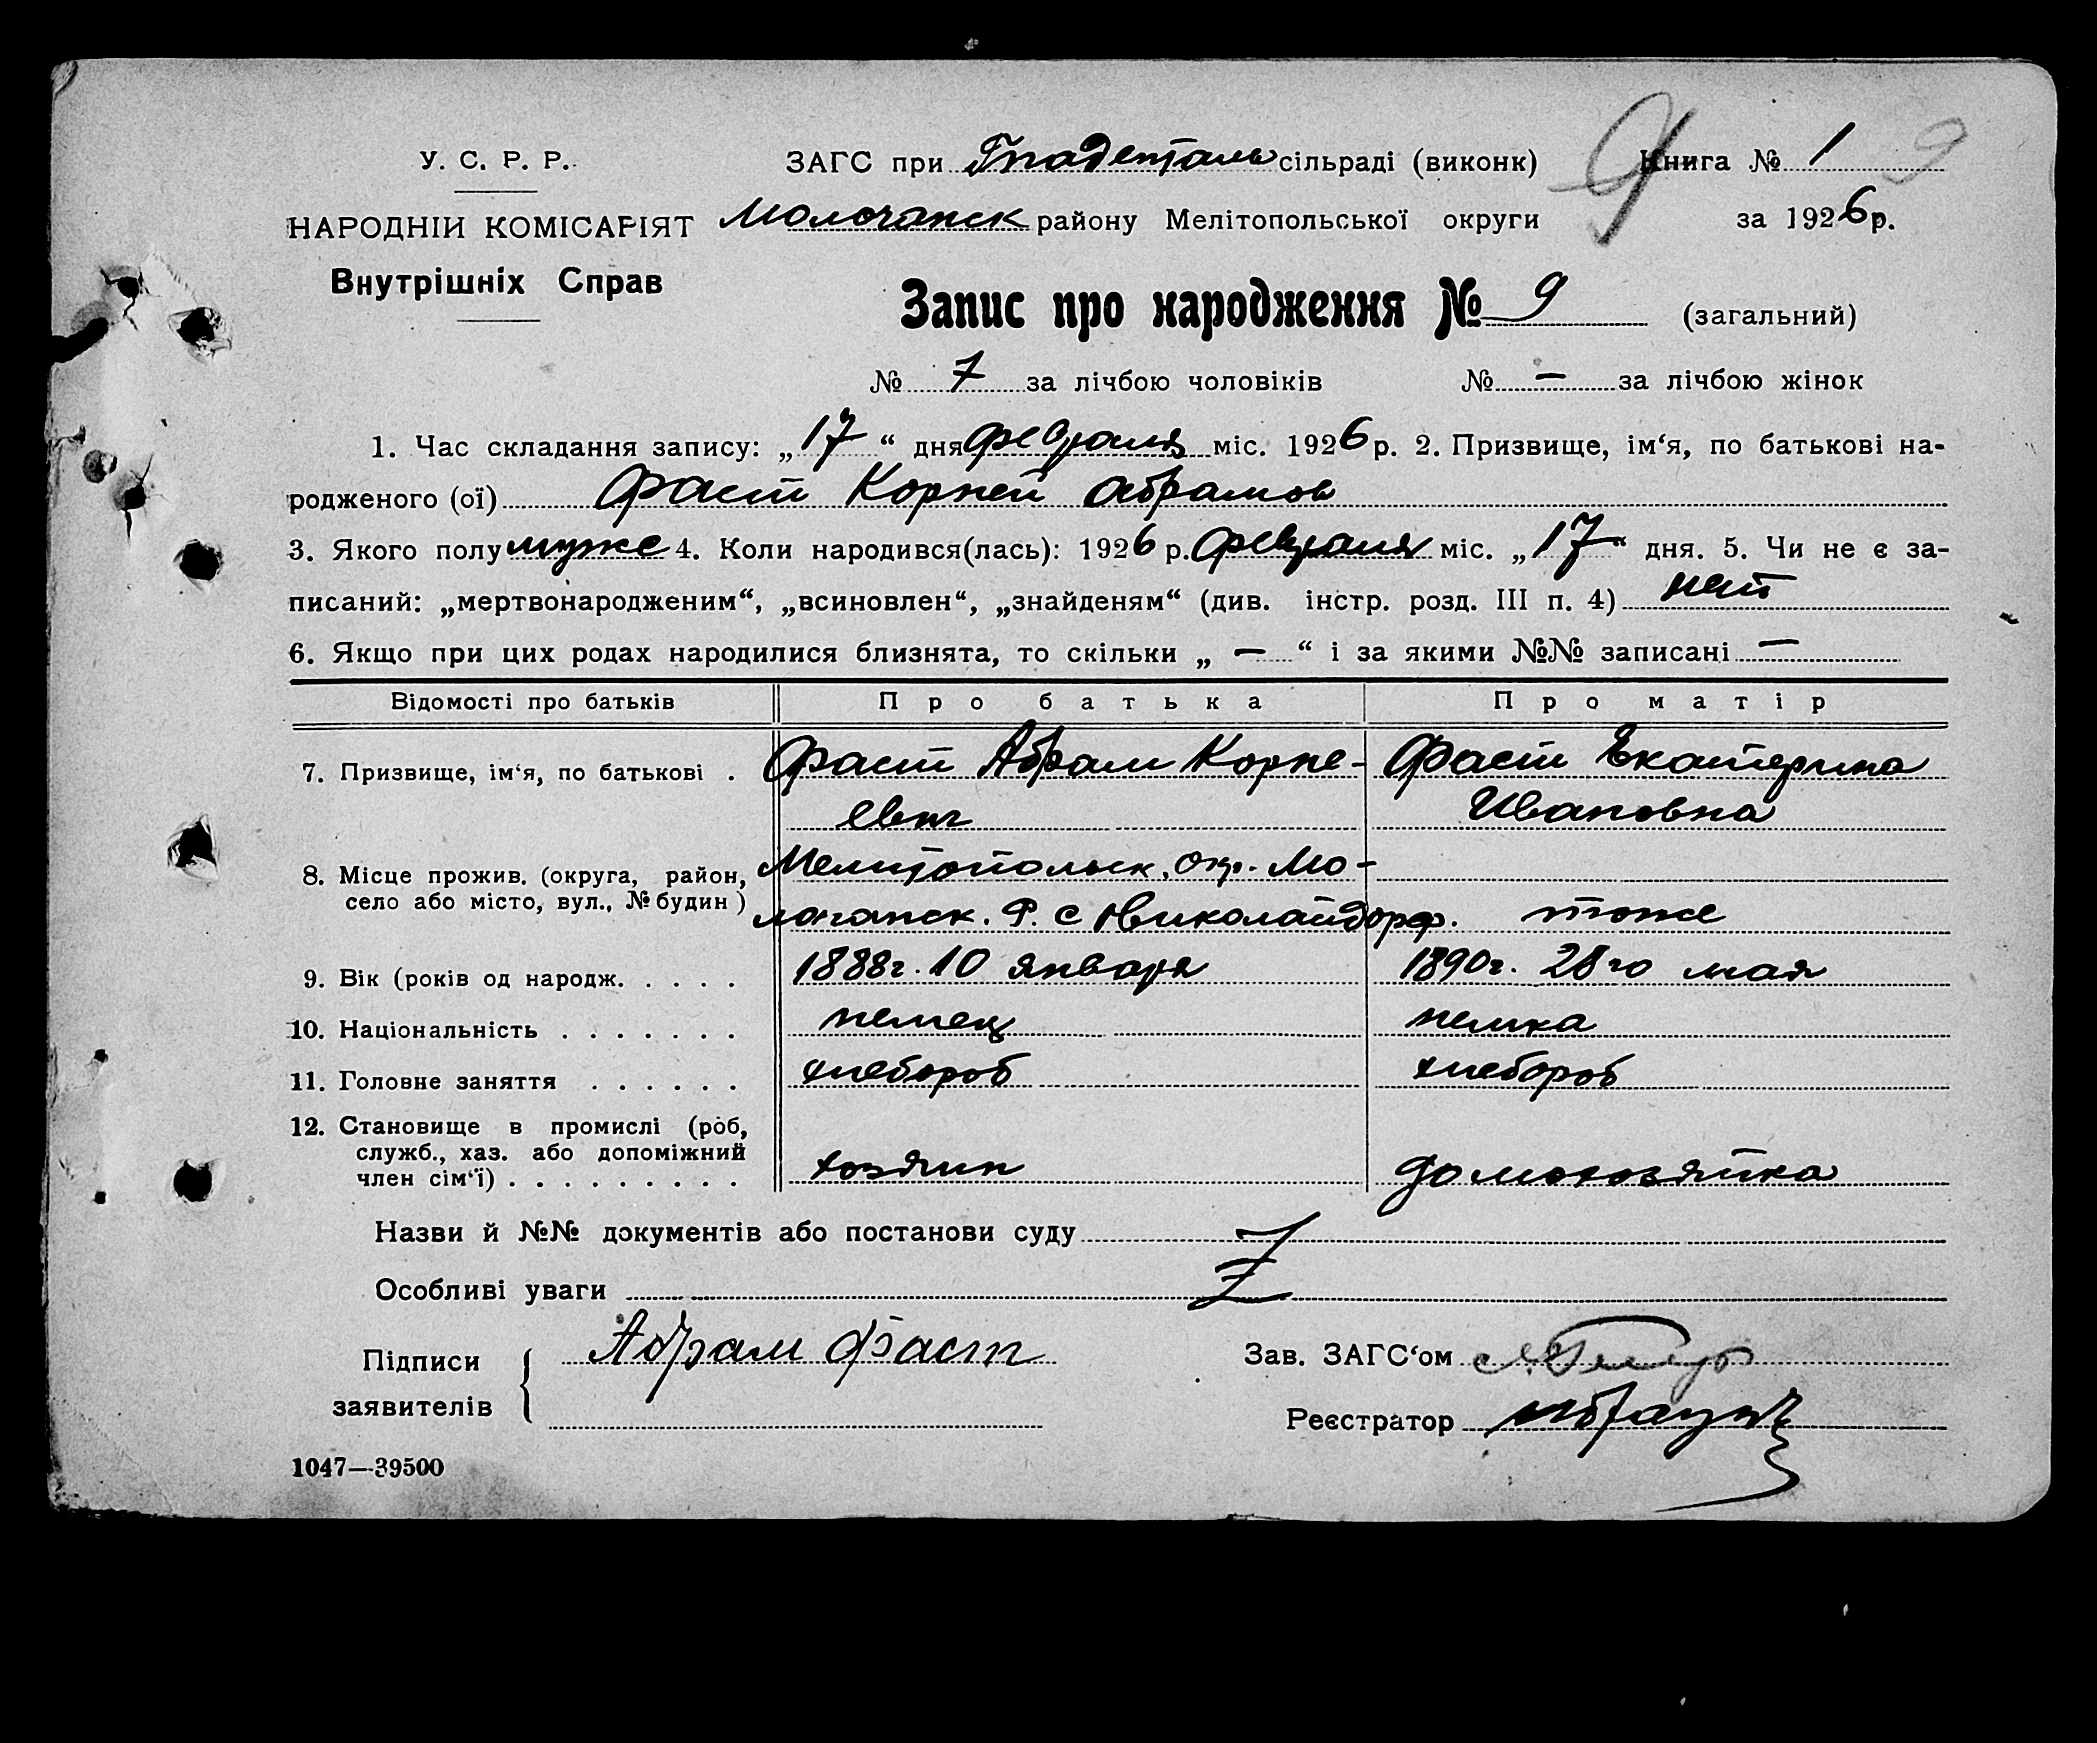 У. С. Р. Р. ЗАГС при Гнадеталь сільраді (виконк) Книга № 1 9
НАРОДНІЙ КОМІСАРІЯТ Молочанск району Мелітопольської округи за 1926 р.
Внутрішніх Справ
Запис про народження № 9 (загальний)
№ 7 за лічбою чоловіків № — за лічбою жінок
1. Час складання запису: „17“ дня февраля міс. 1926 р. 2. Призвище, ім‘я, по батькові на-
родженого (ої) Фаст Корней Абрамов
3. Якого полу мужс 4. Коли народився(лась): 1926 р. февраля міс. „17“ дня. 5. Чи не є за-
писаний: „мертвонародженим“, „всиновлен“, „знайденям“ (див. інстр. розд. III п. 4) нет
6. Якщо при цих родах народилися близнята, то скільки „ — “ і за якими №№ записані —
Відомості про батьків Про батька Про матір
7. Призвище, ім‘я, по батькові . Фаст Абрам Корне- Фаст Екатерина
евич Ивановна
8. Місце прожив. (округа, район, Мелитопольск. окр. Мо-
село або місто, вул., № будин) лочанск. Р. с Николайдорф. тоже
9. Вік (років од народж. . . . . 1888г. 10 января 1890г. 28го мая
10. Національність . . . . . . . немец немка
11. Головне заняття . . . . . . хлебороб хлебороб
12. Становище в промислі (роб,
служб., хаз. або допоміжний
член сім‘ї) . . . . . . . . . хозяин домохозяйка
Назви й №№ документів або постанови суду
Особливі уваги
Підписи Абрам Фаст Зав. ЗАГС‘ом
заявителів Реєстратор
1047—39500